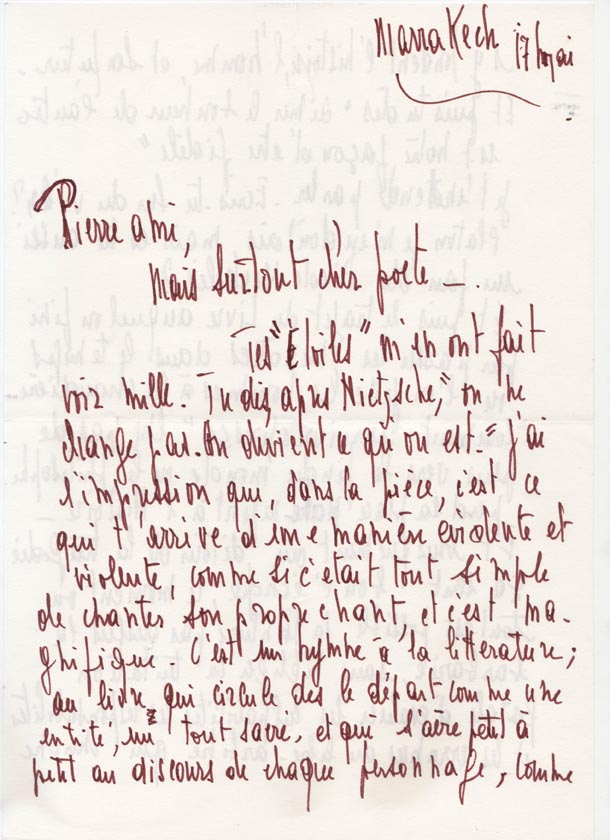 Marrakech 17 mai
Pierre ami,
mais surtout cher poète —.
Tes "Étoiles" m'en ont fait
voir mille. Tu dis, après Nietzsche, "on ne
change pas. On devient ce qu'on est." J'ai
l'impression que, dans ta pièce c'est ce
qui t'arrive d'une manière évidente et
violente, comme si c'était tout simple
de chanter son propre chant, et c'est ma-
gnifique. C'est un hymne à la littérature;
au livre qui circule dès le départ comme une
entité, un tout sacré, et qui s'avère petit à
petit au discours de chaque personnage, comme